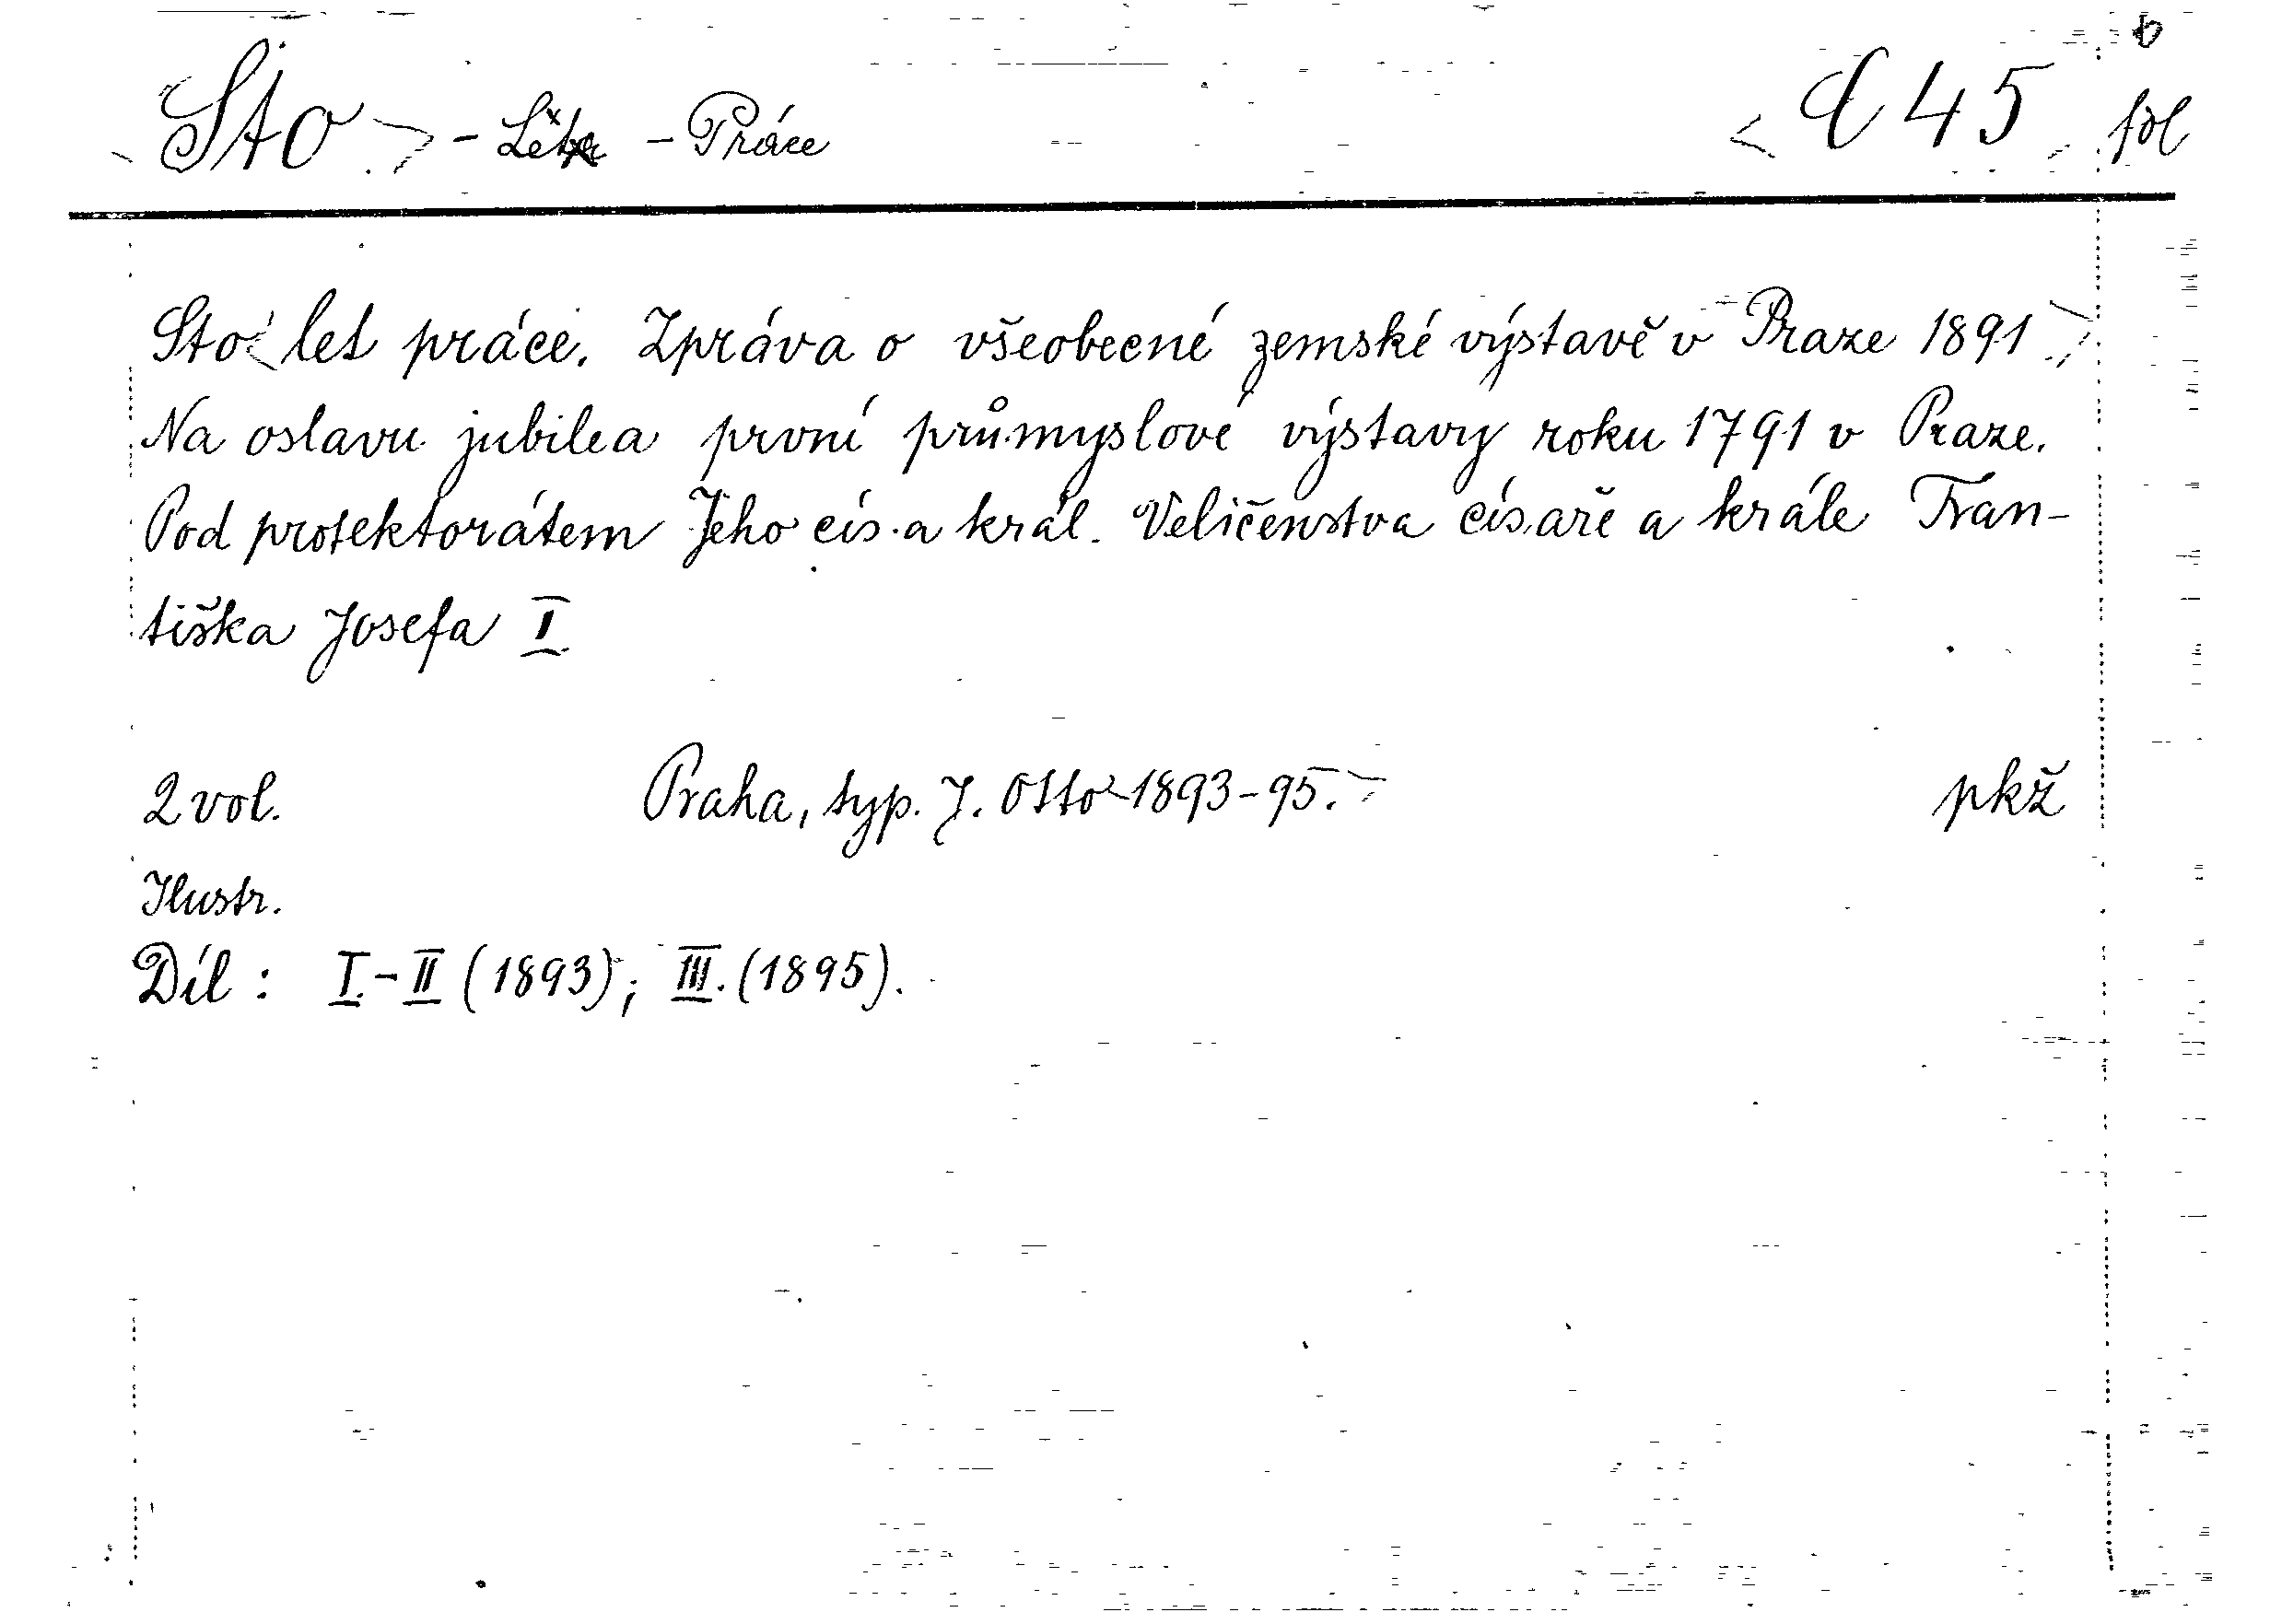 Sto - Léta - Práce C 45 fol
Sto let práce. Zpráva o všeobecné zemské výstavě v Praze 1891
Na oslavu jubilea první průmyslové výstavy roku 1791 v Praze.
Pod protektorátem Jeho cís. a král. Veličenstva císaře a krále Fran-
tiška Josefa I.
2 vol. Praha, typ. J. Otto 1893-95. pkž
Ilustr.
Díl: I.-II (1893); III. (1895).